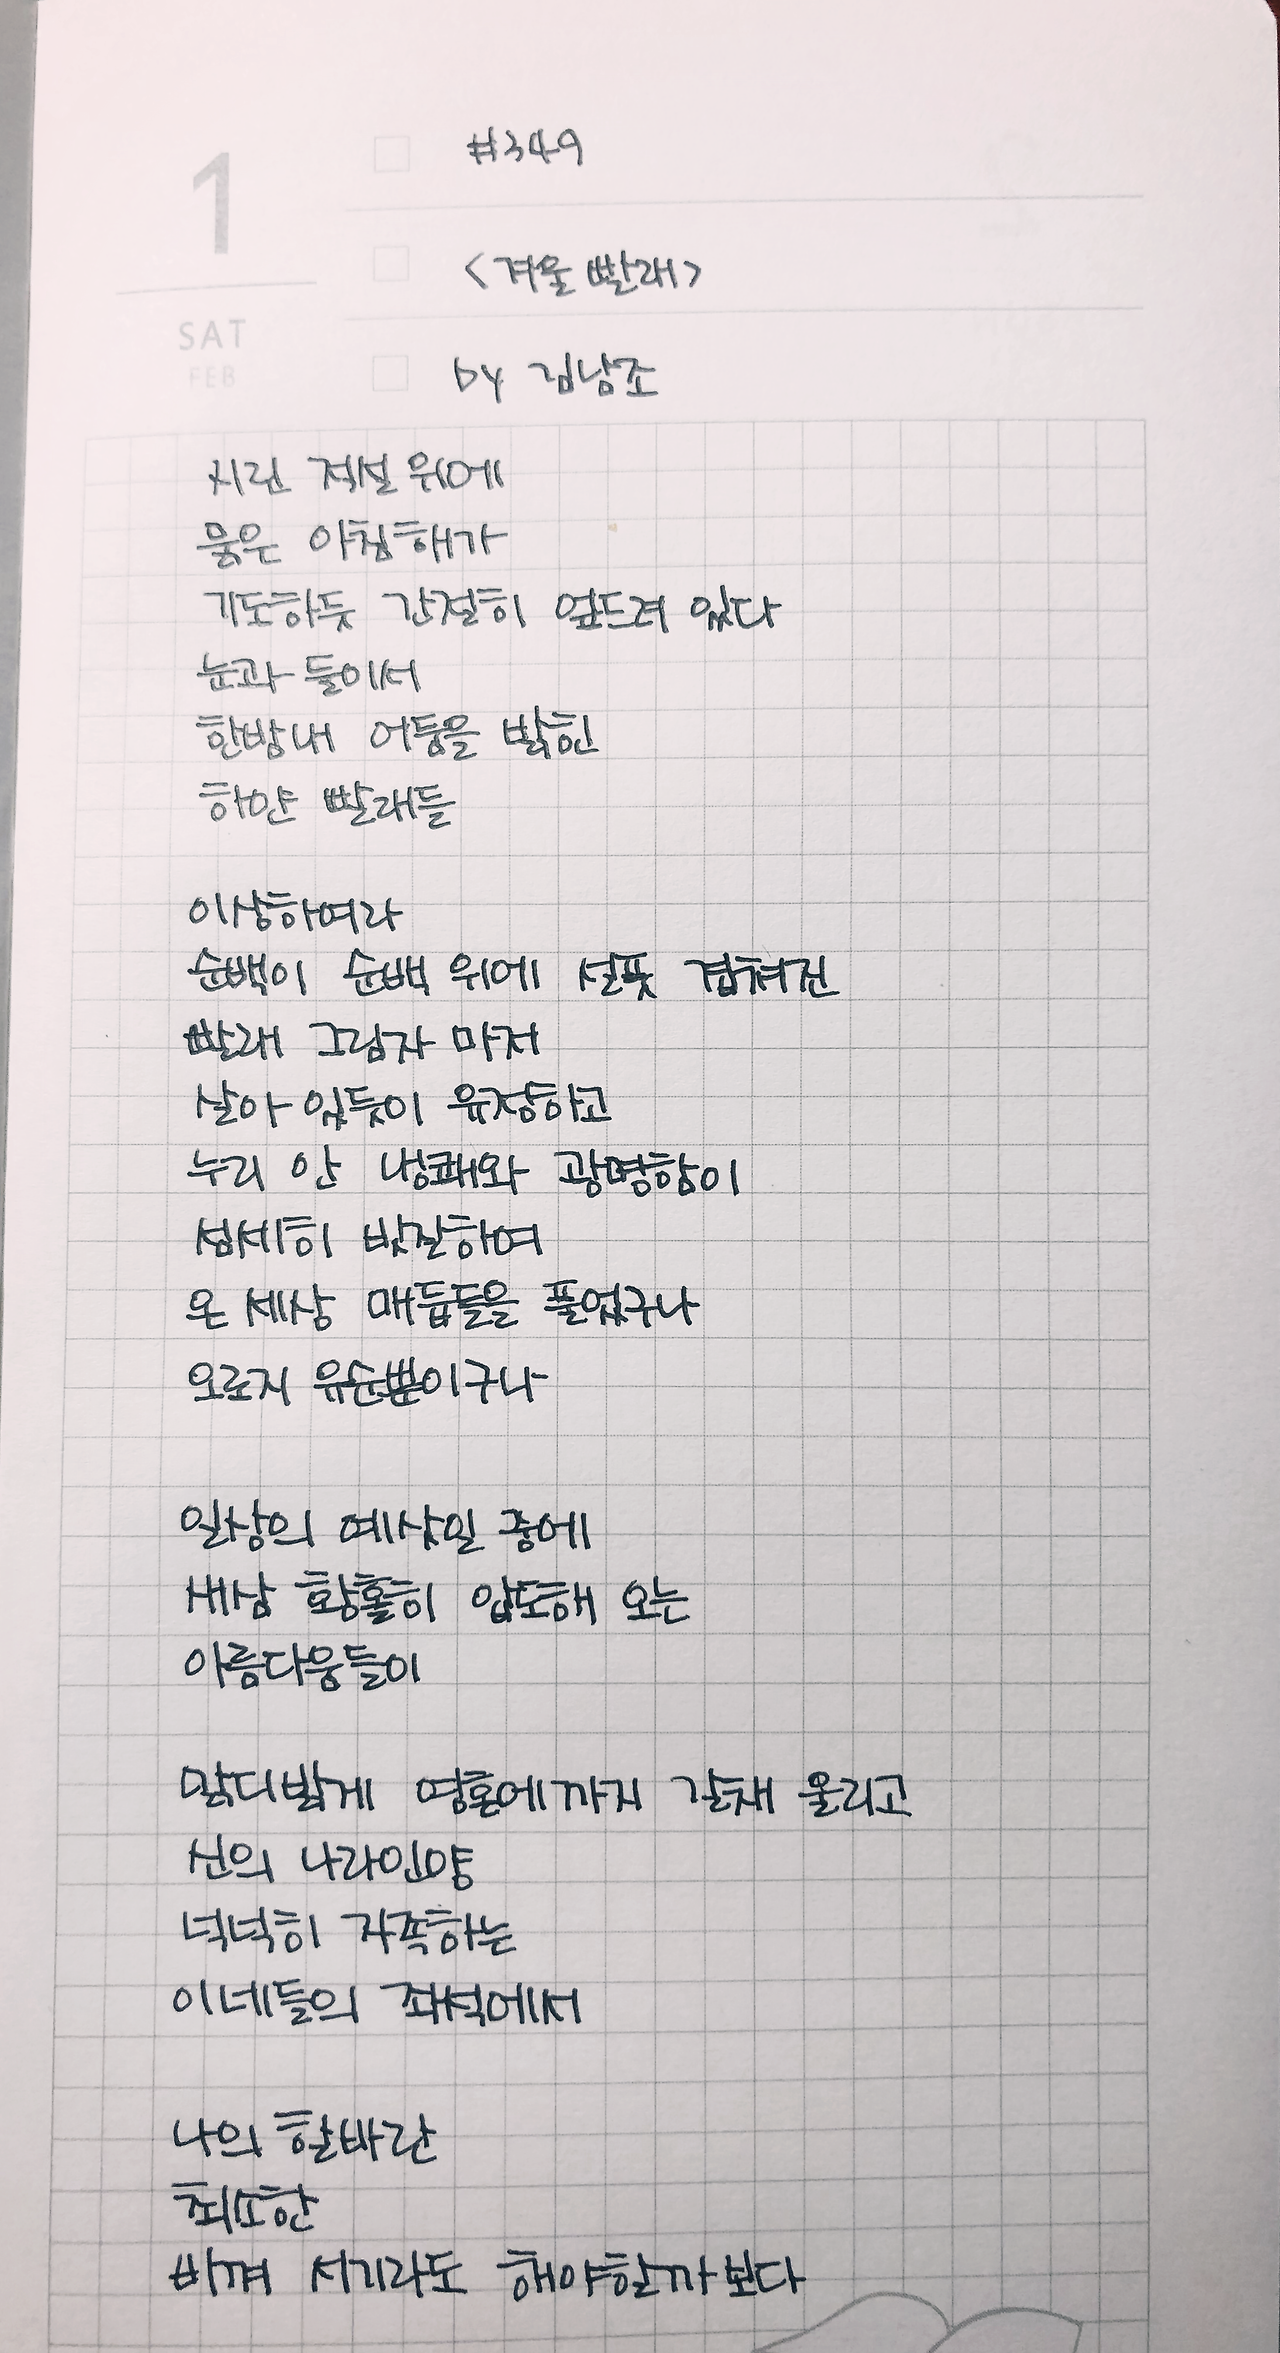 1
SAT
FEB
#349
<겨울 빨래>
by 김남조
시린 적설 위에
붉은 아침해가
기도하듯 간절히 엎드려 있다
눈과 둘이서
한밤내 어둠을 밝힌
하얀 빨래들
이상하여라
순백이 순백 위에 설풋 겹쳐진
빨래 그림자 마저
살아 있듯이 유장하고
누리 안 냉쾌와 광명함이
섬세히 빗질하여
온 세상 매듭들을 풀었구나
오로지 유순뿐이구나
일상의 예삿일 중에
새삼 황홀히 압도해 오는
아름다움들이
맑디밝게 영혼에까지 갈채 울리고
신의 나라인양
넉넉히 자족하는
이네들의 좌석에서
나의 할바란
최소한
비껴 서기라도 해야할까보다